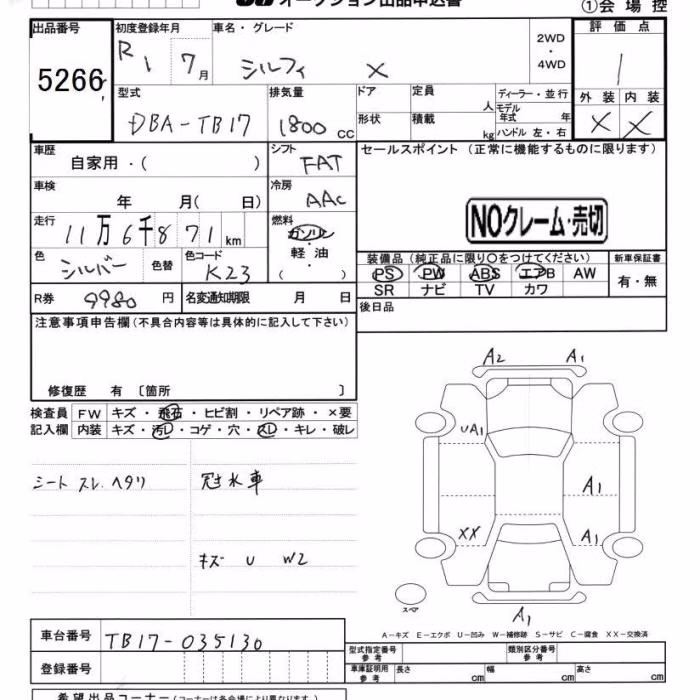 オークション出品申込書
①会場控
出品番号 初度登録年月 車名・グレード 2WD・4WD 評価点
5266 R1 7月 シルフィ X 1
型式 排気量 ドア 定員 人 ディーラー・並行 外装 内装
DBA-TB17 1800cc 形状 積載 kg モデル年式 年 ハンドル 左・右 X X
車歴 シフト セールスポイント (正常に機能するものに限ります)
自家用・( ) FAT
車検 冷房
年 月( 日) AAC
NOクレーム・売切
走行 燃料
11万6千871km ガソリン
軽油
( )
色 色替 色コード
シルバー K23
装備品 (純正品に限り○をつけてください) 新車保証書
PS PW ABS エアB AW 有・無
SR ナビ TV カワ
R券 9980円 名変通知期限 月 日 後日品
注意事項申告欄(不具合内容等は具体的に記入して下さい)
修復歴 有〔箇所 〕
検査員 FW キズ・飛石・ヒビ割・リペア跡・×要
記入欄 内装 キズ・汚レ・コゲ・穴・スレ・キレ・破レ
シート スレ ヘタリ 冠水車
キズ U W2
A2 A1
UA1
A1
XX A1
スペア A1
A-キズ E-エクボ U-凹み W-補修跡 S-サビ C-腐食 XX-交換済
車台番号 TB17-035130
登録番号
型式指定番号 参考 類別区分番号 参考
車庫証明用 参考 長さ cm 幅 cm 高さ cm
希望出品コーナー(コーナーは各会場により異なります。)